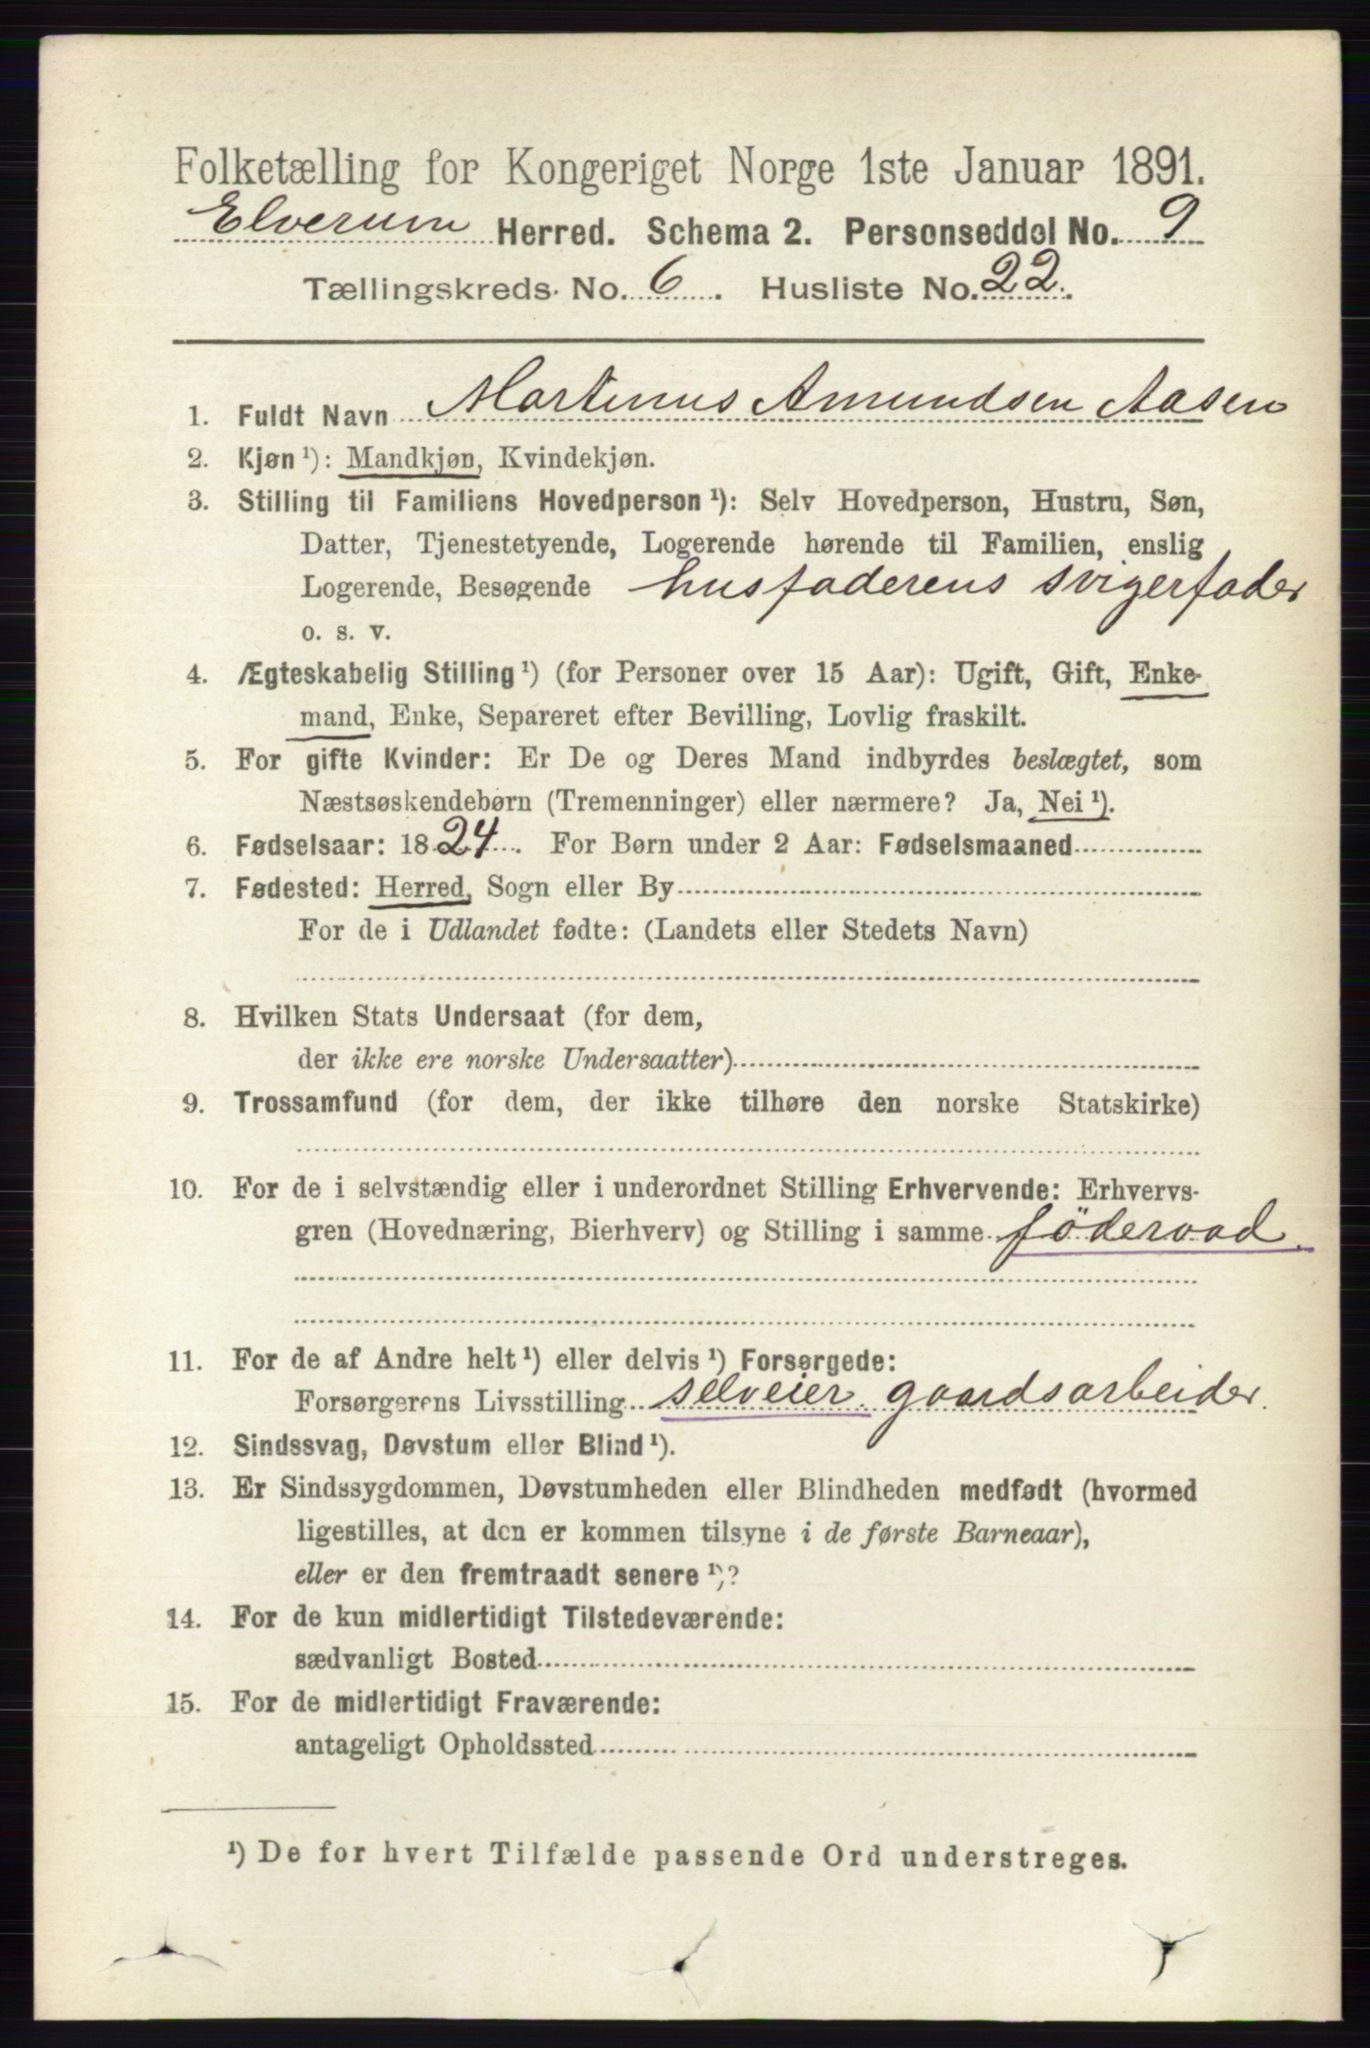 Folketælling for Kongeriget Norge 1ste Januar 1891.
Elverum Herred. Schema 2. Personseddel No. 9
Tællingskreds No. 6. Husliste No. 22.
1. Fuldt Navn Martinus Amundsen Aasen
2. Kjøn ¹): Mandkjøn, Kvindekjøn.
3. Stilling til Familiens Hovedperson ¹): Selv Hovedperson, Hustru, Søn,
Datter, Tjenestetyende, Logerende hørende til Familien, enslig
Logerende, Besøgende husfaderens svigerfader
o. s. v.
4. Ægteskabelig Stilling ¹) (for Personer over 15 Aar): Ugift, Gift, Enke-
mand, Enke, Separeret efter Bevilling, Lovlig fraskilt.
5. For gifte Kvinder: Er De og Deres Mand indbyrdes beslægtet, som
Næstsøskendebørn (Tremenninger) eller nærmere? Ja, Nei ¹).
6. Fødselsaar: 1824. For Børn under 2 Aar: Fødselsmaaned
7. Fødested: Herred, Sogn eller By
For de i Udlandet fødte: (Landets eller Stedets Navn)
8. Hvilken Stats Undersaat (for dem,
der ikke ere norske Undersaatter)
9. Trossamfund (for dem, der ikke tilhøre den norske Statskirke)
10. For de i selvstændig eller i underordnet Stilling Erhvervende: Erhvervs-
gren (Hovednæring, Bierhverv) og Stilling i samme föderaad.
11. For de af Andre helt ¹) eller delvis ¹) Forsørgede:
Forsørgerens Livsstilling selveier. gaardsarbeider.
12. Sindssvag, Døvstum eller Blind ¹).
13. Er Sindssygdommen, Døvstumheden eller Blindheden medfødt (hvormed
ligestilles, at den er kommen tilsyne i de første Barneaar),
eller er den fremtraadt senere ¹)?
14. For de kun midlertidigt Tilstedeværende:
sædvanligt Bosted
15. For de midlertidigt Fraværende:
antageligt Opholdssted
¹) De for hvert Tilfælde passende Ord understreges.